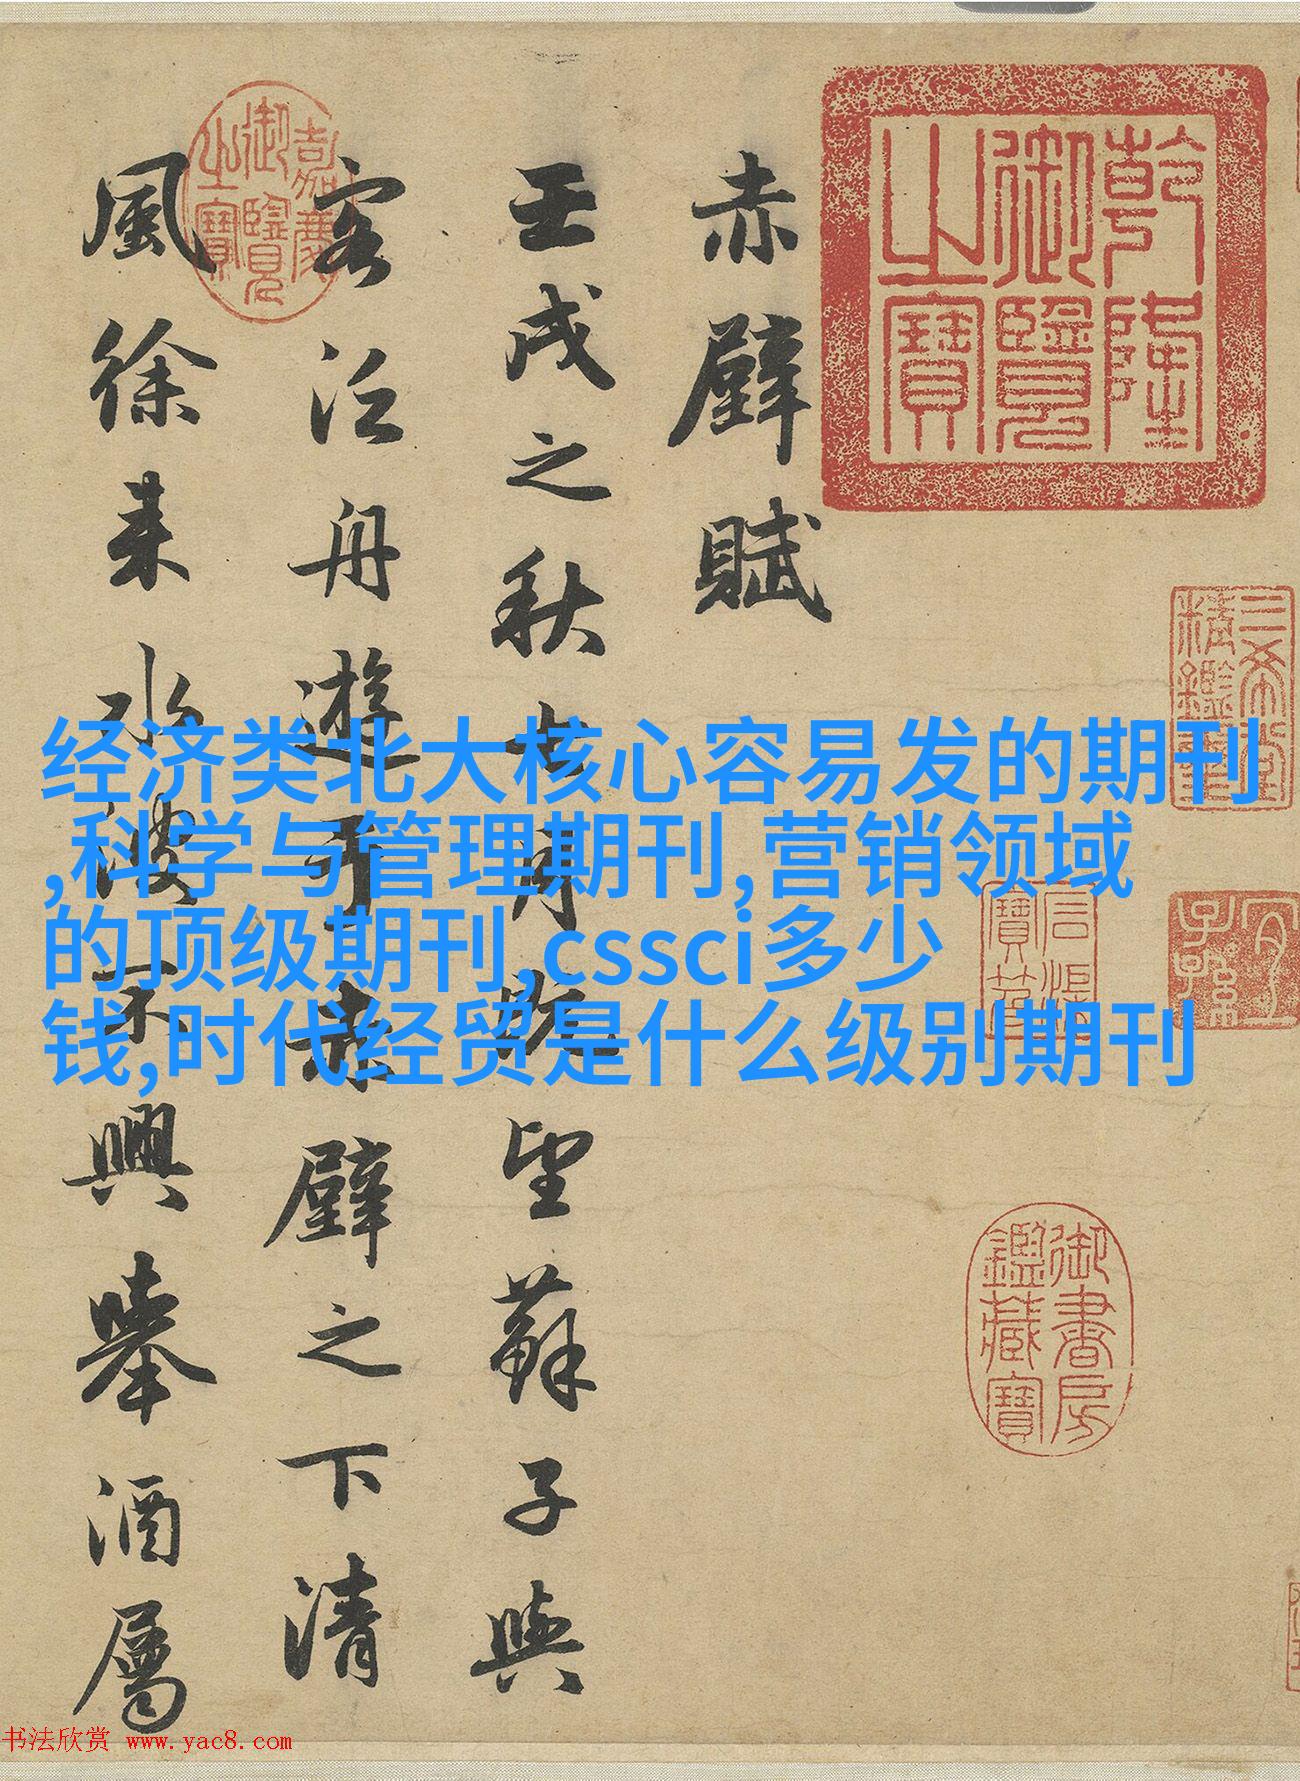 乾隆
御覽
之寶
赤壁賦
壬戌之秋七月既望蘇子與
客泛舟遊于赤壁之下清
風徐来水波不興舉酒屬
嘉慶
御覽
之寶
三希堂
精鑑璽
宜
子孫
御書房
鑑藏寶
经济类北大核心容易发的期刊
,科学与管理期刊,营销领域
的顶级期刊,cssci多少
钱,时代经贸是什么级别期刊
书法欣赏 www.yac8.com